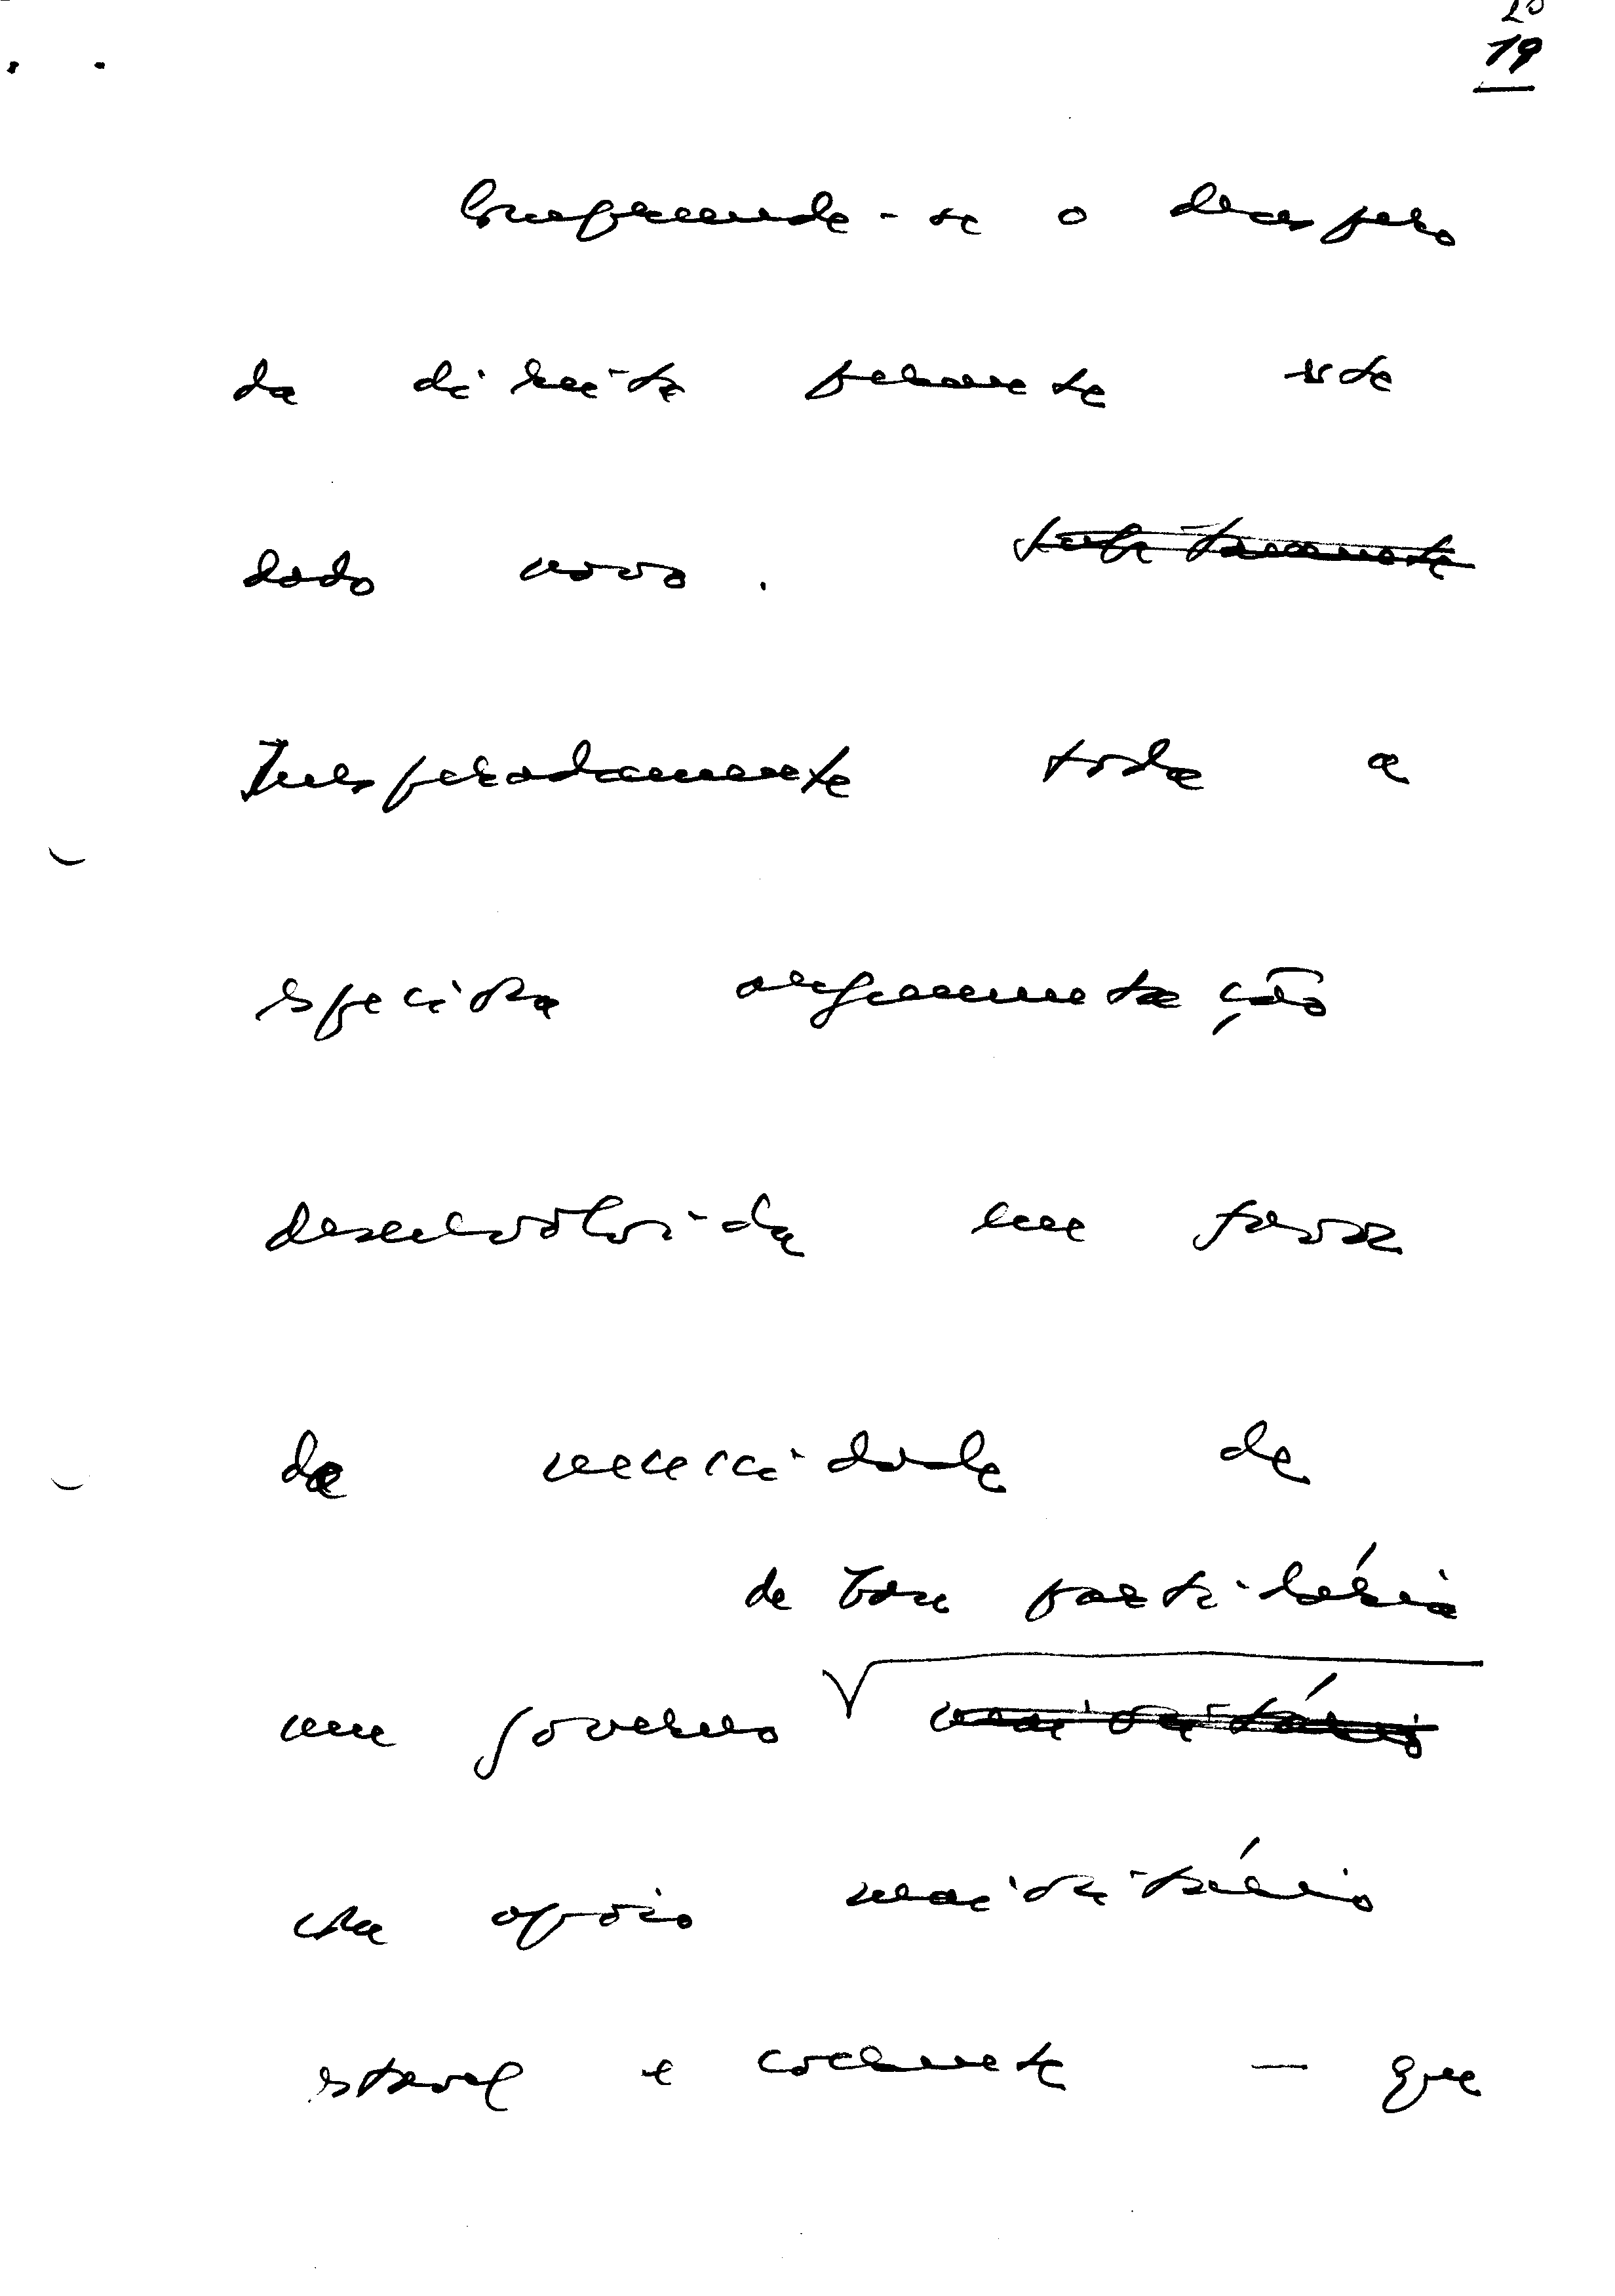 20
19
Compreende-se o desespero
da direita perante este
dado novo. Subitamente
Inesperadamente toda a
especiosa argumentação
desenvolvida em favor
da necessidade de
de base partidária
um governo maioritário
com apoio maioritário
estável e coerente — que